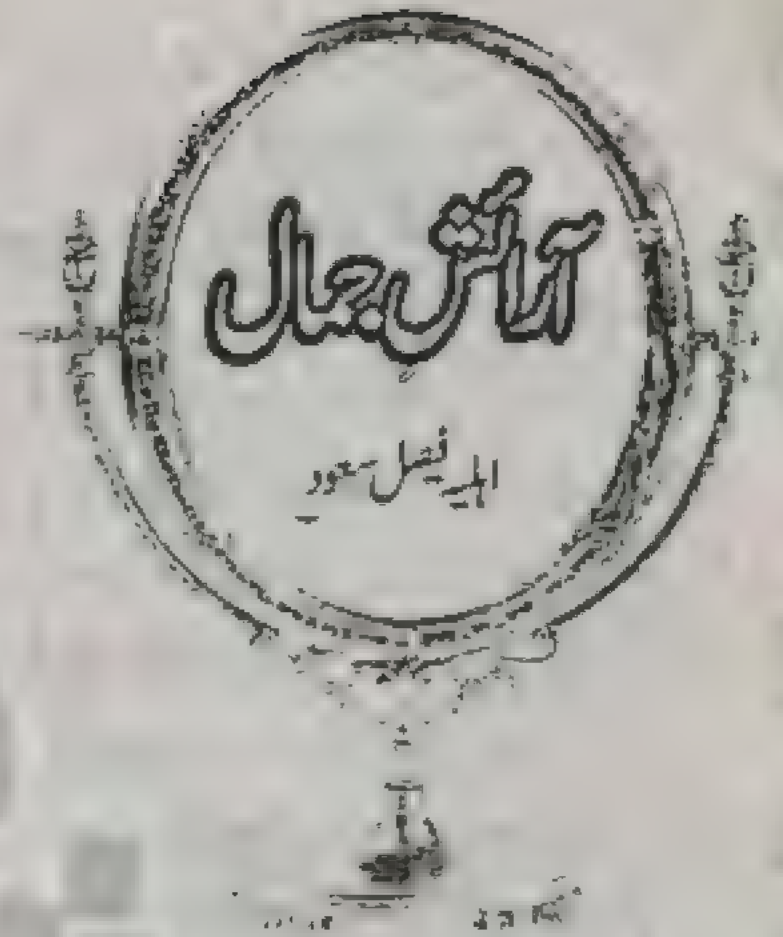 آرائشِ جمال
اہلیہ فیصل سعود